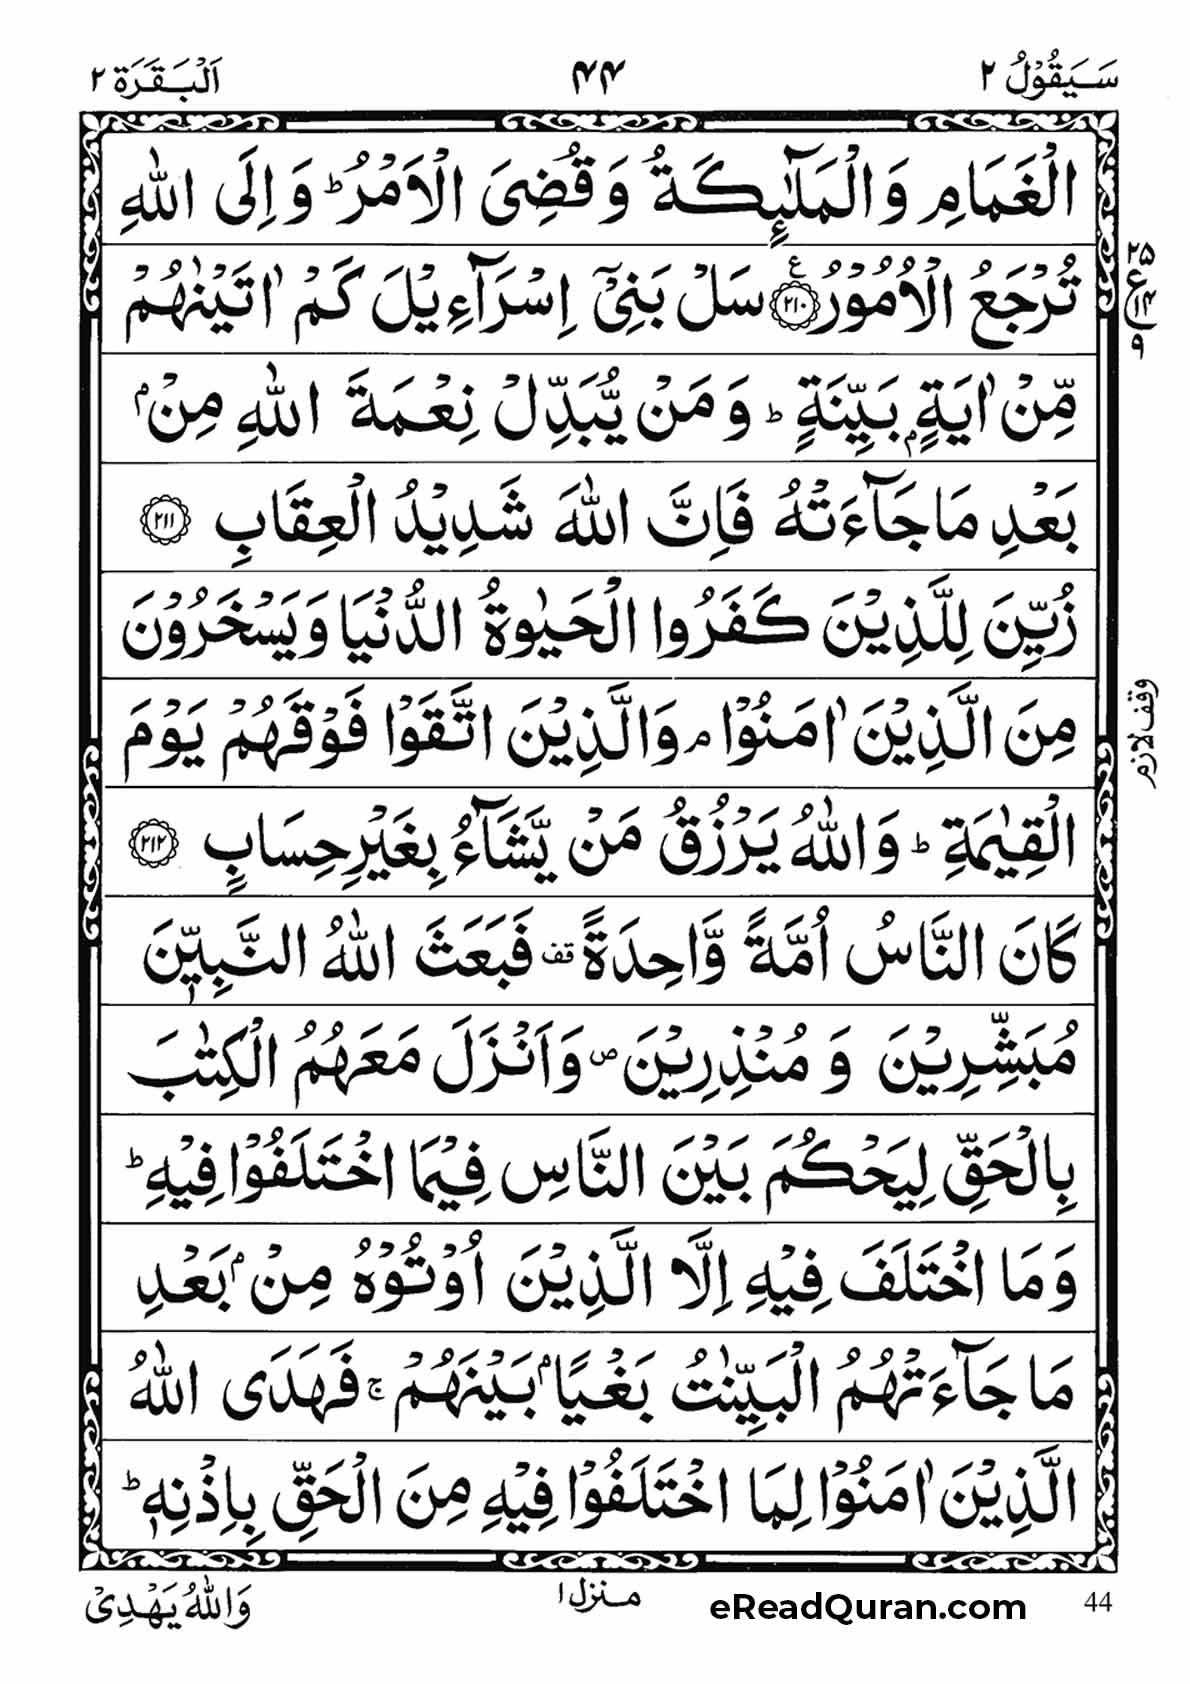 سَيَقُوْلُ ٢ ۴۴ اَلْبَقَرَة ٢
الْغَمَامِ وَالْمَلٰٓئِكَةُ وَقُضِىَ الْاَمْرُ ؕ وَاِلَى اللّٰهِ
تُرْجَعُ الْاُمُوْرُ ﴿٢١٠﴾ ع سَلْ بَنِىْٓ اِسْرَآءِيْلَ كَمْ اٰتَيْنٰهُمْ
٢٥
ع
١۴
٩
مِّنْ اٰيَةٍۭ بَيِّنَةٍ ؕ وَمَنْ يُّبَدِّلْ نِعْمَةَ اللّٰهِ مِنْۢ
بَعْدِ مَا جَآءَتْهُ فَاِنَّ اللّٰهَ شَدِيْدُ الْعِقَابِ ﴿٢١١﴾
زُيِّنَ لِلَّذِيْنَ كَفَرُوا الْحَيٰوةُ الدُّنْيَا وَيَسْخَرُوْنَ
مِنَ الَّذِيْنَ اٰمَنُوْا ۘ وَالَّذِيْنَ اتَّقَوْا فَوْقَهُمْ يَوْمَ
وقف لازم
الْقِيٰمَةِ ؕ وَاللّٰهُ يَرْزُقُ مَنْ يَّشَآءُ بِغَيْرِ حِسَابٍ ﴿٢١٢﴾
كَانَ النَّاسُ اُمَّةً وَّاحِدَةً قف فَبَعَثَ اللّٰهُ النَّبِيّٖنَ
مُبَشِّرِيْنَ وَ مُنْذِرِيْنَ ص وَاَنْزَلَ مَعَهُمُ الْكِتٰبَ
بِالْحَقِّ لِيَحْكُمَ بَيْنَ النَّاسِ فِيْمَا اخْتَلَفُوْا فِيْهِ ؕ
وَمَا اخْتَلَفَ فِيْهِ اِلَّا الَّذِيْنَ اُوْتُوْهُ مِنْۢ بَعْدِ
مَا جَآءَتْهُمُ الْبَيِّنٰتُ بَغْيًۢا بَيْنَهُمْ ۚ فَهَدَى اللّٰهُ
الَّذِيْنَ اٰمَنُوْا لِمَا اخْتَلَفُوْا فِيْهِ مِنَ الْحَقِّ بِاِذْنِهٖ ؕ
وَاللّٰهُ يَهْدِىْ منزل ١ eReadQuran.com 44